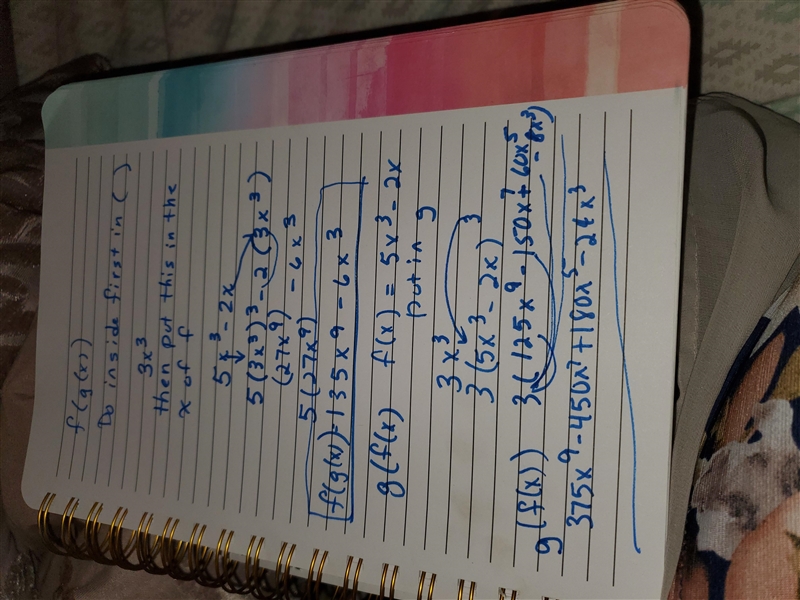 f(g(x))
Do inside first in ( )
3x³
then put this in the
x of f
5x³ - 2x
5(3x³)³ - 2(3x³)
(27x⁹) - 6x³
5(27x⁹)
f(g(x)) = 135x⁹ - 6x³
g(f(x) f(x) = 5x³ - 2x
put in g
3x³
3(5x³ - 2x)³
g(f(x)) 3(125x⁹ - 150x⁷ + 60x⁵
- 8x³)
375x⁹ - 450x⁷ + 180x⁵ - 24x³